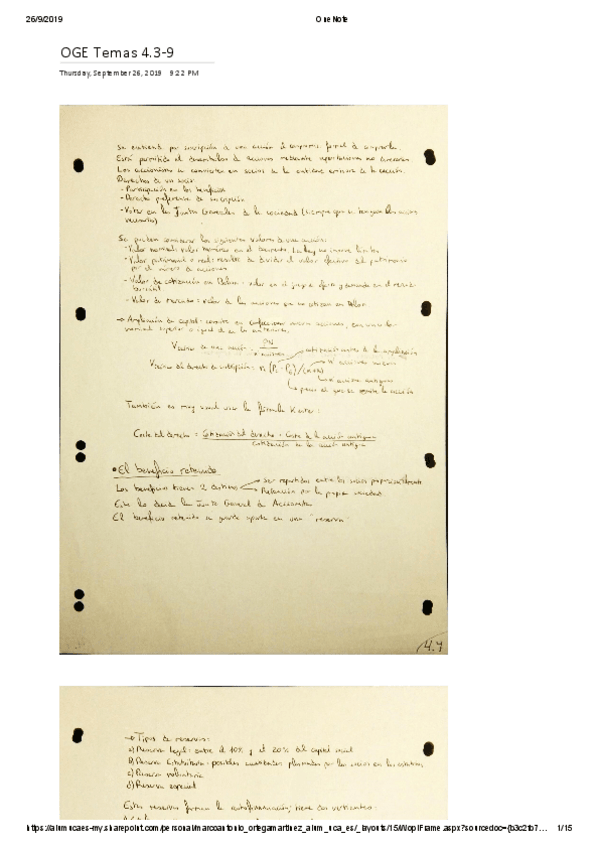 26/9/2019
OneNote
OGE Temas 4.3-9
Thursday, September 26, 2019 9:22 PM
Se entiende por suscripción de una acción el compromiso formal de comprarla.
Está permitido el desembolso de acciones mediante aportaciones no dinerarias.
Los accionistas se convierten en socios de la entidad emisora de la acción.
Derechos de un socio:
- Participación en los beneficios
- Derecho preferente de suscripción
- Votar en las Juntas Generales de la sociedad (siempre que se tengan las acciones
necesarias)
Se pueden considerar los siguientes valores de una acción:
- Valor nominal: valor numérico en el momento
- Valor patrimonial o real: resulta de dividir el valor efectivo del patrimonio
por el número de acciones
- Valor de cotización en Bolsa: valor en el juego de oferta y demanda en el mercado
bursátil
- Valor de mercado: valor de las acciones que no cotizan en Bolsa
→ Ampliación de capital: consiste en nuevas acciones, con un valor
nominal superior o igual al de las anteriores.
Valor de una acción: PN / nº acciones
antes de la ampliación
nº acciones nuevas
Valor del derecho de suscripción: n(P₁ - P₀)/(m+n)
nº acciones antiguas
precio al que se emite la acción
También es muy usual usar la fórmula
Coste del derecho = Cotización del derecho × Coste de la acción antigua
Cotización de la acción antigua
• El beneficio retenido
Los beneficios tienen 2 destinos
Ser repartidos entre los socios proporcionalmente
Retención por la propia sociedad
Esto lo decide la Junta General de Accionistas
El beneficio retenido se guarda aparte en una "reserva"
4.4
→ Tipos de reservas:
a) Reserva legal: entre el 10% y el 20% del capital social
b) Reserva Estatutaria: posibles cantidades plasmadas por los socios en los estatutos
c) Reserva voluntaria
d) Reserva especial
Estas reservas forman la autofinanciación; tiene dos vertientes:
https://alumnucaes-my.sharepoint.com/personal/marcoantonio_ortegamartinez_alum_uca_es/_layouts/15/WopiFrame.aspx?sourcedoc={b3c2fb7…
1/15